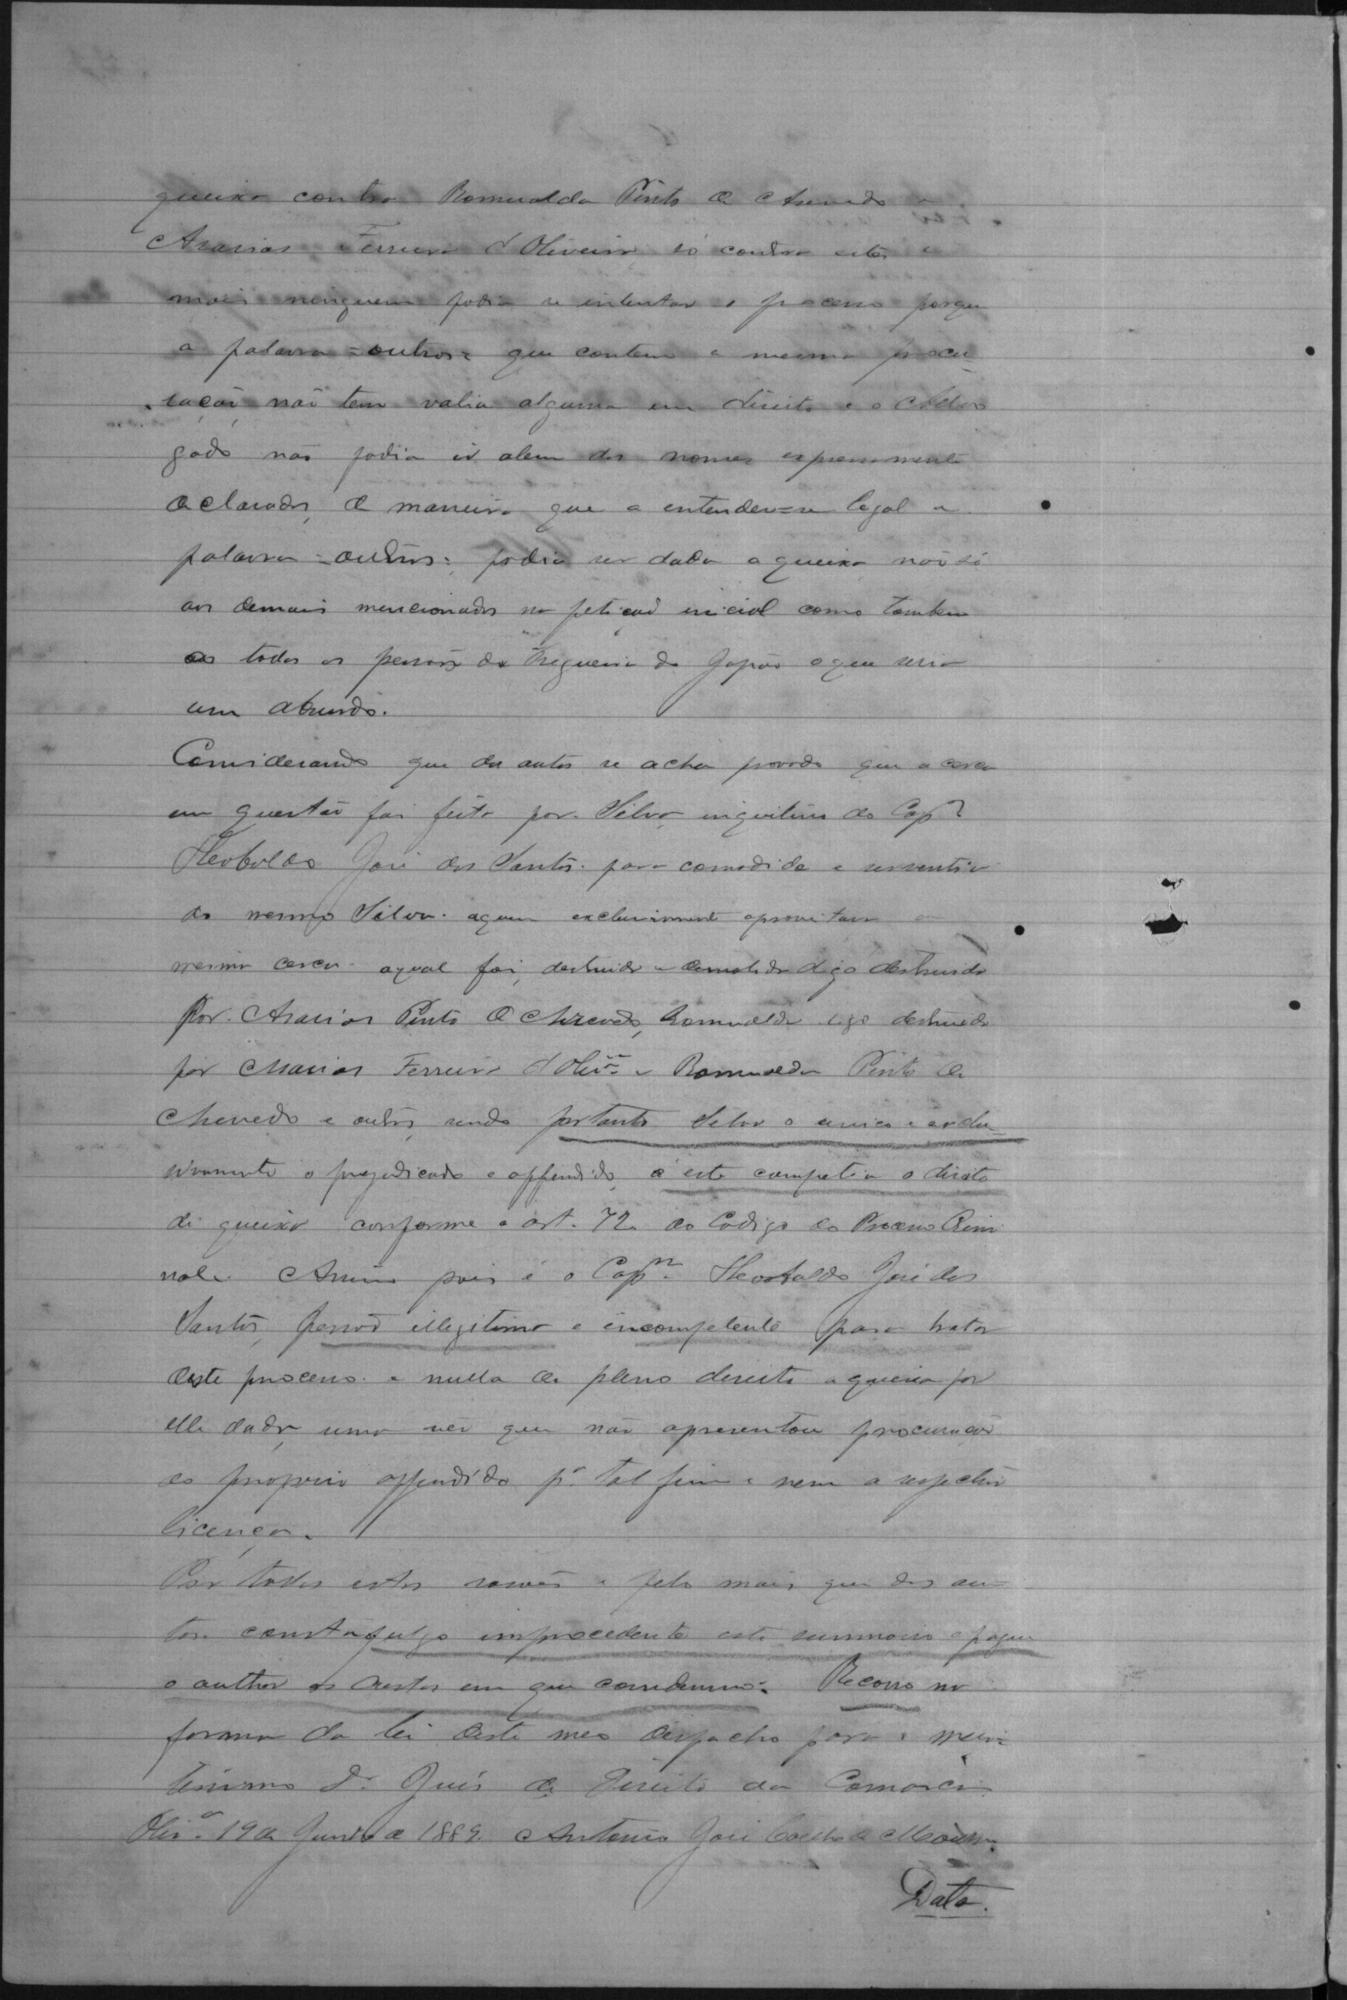 queixa contra Romualdo Pinto de Asevedo e
Ananias Ferreira d'Oliveira, só contra estes e
mais ninguem podia se intentar o processo porque
a palavra = outros = que contem a mesma procu-
ração, não tem valia alguma em direito e o
gado não podia ir alem dos nomes expressamente
declarados, de maneira que a entender=se legal a
palavra = outros = podia ser dada a queixa não só
aos demais mencionados na petição inicial como tambem
a todas as pessoas da Freguesia do Japão o que seria
um absurdo.
Considerando que dos autos se acha provado que a cerca
em questão foi feita por Silva, inquilino do Capm
Theobaldo José dos Santos para comodida e
do mesmo Silva a quem exclusivamente aproveitava a
mesma cerca a qual foi destruida e demolida digo destruida
por Ananias Pinto de Azevedo, Romualdo digo destruida
por Ananias Ferreira d'Olivra e Romualdo Pinto de
Asevedo e outros, sendo portanto Silva o unico e exclu-
sivamente o prejudicado e offendido, a este competia o direito
de queixa conforme o art. 72 do Codigo do Processo Crimi
nal. Assim pois é o Capm Theobaldo José dos
Santos, pessoa illegitima e incompetente para tratar
deste processo e nulla de pleno direito a queixa por
elle dada, uma vez que não apresentou procuração
do proprio offendido pa tal fim e nem a respectiva
licença.
Por todas estas rasões e pelo mais que dos au-
tos consta julgo improcedente este summario e pague
o author as custas em que condemno. Recorro na
forma da lei deste meo despacho para o meri
tissimo Dr Juis de Direito da Comarca.
Olivra 19 de Junho de 1889 Antonio José Coelho de Moura.
Data.